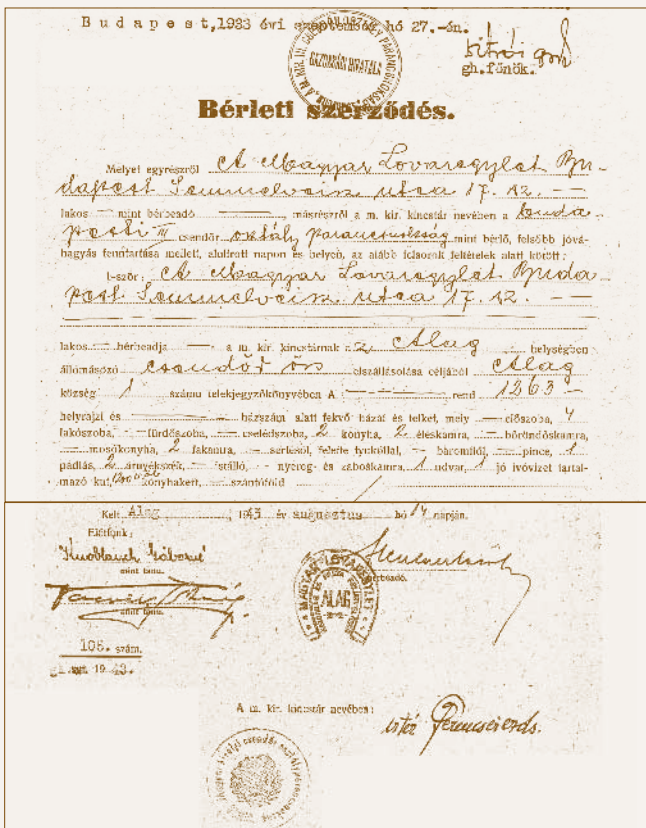 Budapest, 1933 évi szeptember hó 27.-én.
gh.főnök.
GAZDASÁGI HIVATALA
Bérleti szerződés.
Melyet egyrészről A Magyar Lovaregylet Bu-
dapest Semmelweis utca 17. sz. —
lakos — mint bérbeadó —, másrészről a m. kir. kincstár nevében a buda-
pesti III csendőr osztály parancsnokság mint bérlő, felsőbb jóvá-
hagyás fenntartása mellett, alulírott napon és helyen, az alább felsorolt feltételek alatt kötött:
1-ször: A Magyar Lovaregylet Buda-
pest Semmelweis utca 17. sz. —
lakos — bérbeadja — a m. kir. kincstárnak az Alag helységben
állomásozó csendőr őrs elszállásolása céljából Alag
község 1 számú telekjegyzőkönyvében A — rend 1263 —
helyrajzi és — házszám alatt fekvő házat és telket, mely — előszoba, 4
lakószoba, — fürdőszoba, — cselédszoba, 2 konyha, 2 éléskamra, — böröndöskamra,
— mosókonyha, 2 fakamra, — sertésól, felette tyúkóllal, — baromfiól, — pince, 1
padlás, 2 árnyékszék, — istálló, — nyereg- és zaboskamra, 1 udvar, 1 jó ivóvizet tartal-
mazó kut, konyhakert, — szántóföld
Kelt Alag, 1943 év augusztus hó 14 napján.
Előttünk:
Knoblauch Gáborné
mint tanu.
mint tanu.
bérbeadó.
MAGYAR LOVAREGYLET
ALAG
108. szám.
1943.
A m. kir. kincstár nevében: